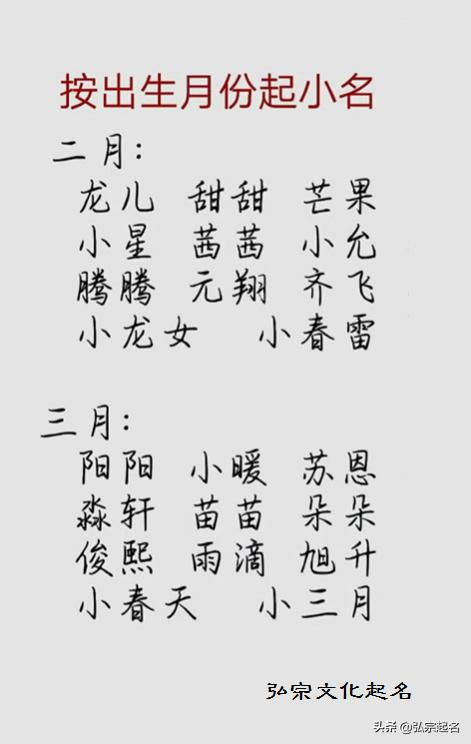 按出生月份起小名
二月：
龙儿 甜甜 芒果
小星 茜茜 小允
腾腾 元翔 齐飞
小龙女 小春雷
三月：
阳阳 小暖 苏恩
淼轩 苗苗 朵朵
俊熙 雨滴 旭升
小春天 小三月
弘宗文化起名
头条 @弘宗起名